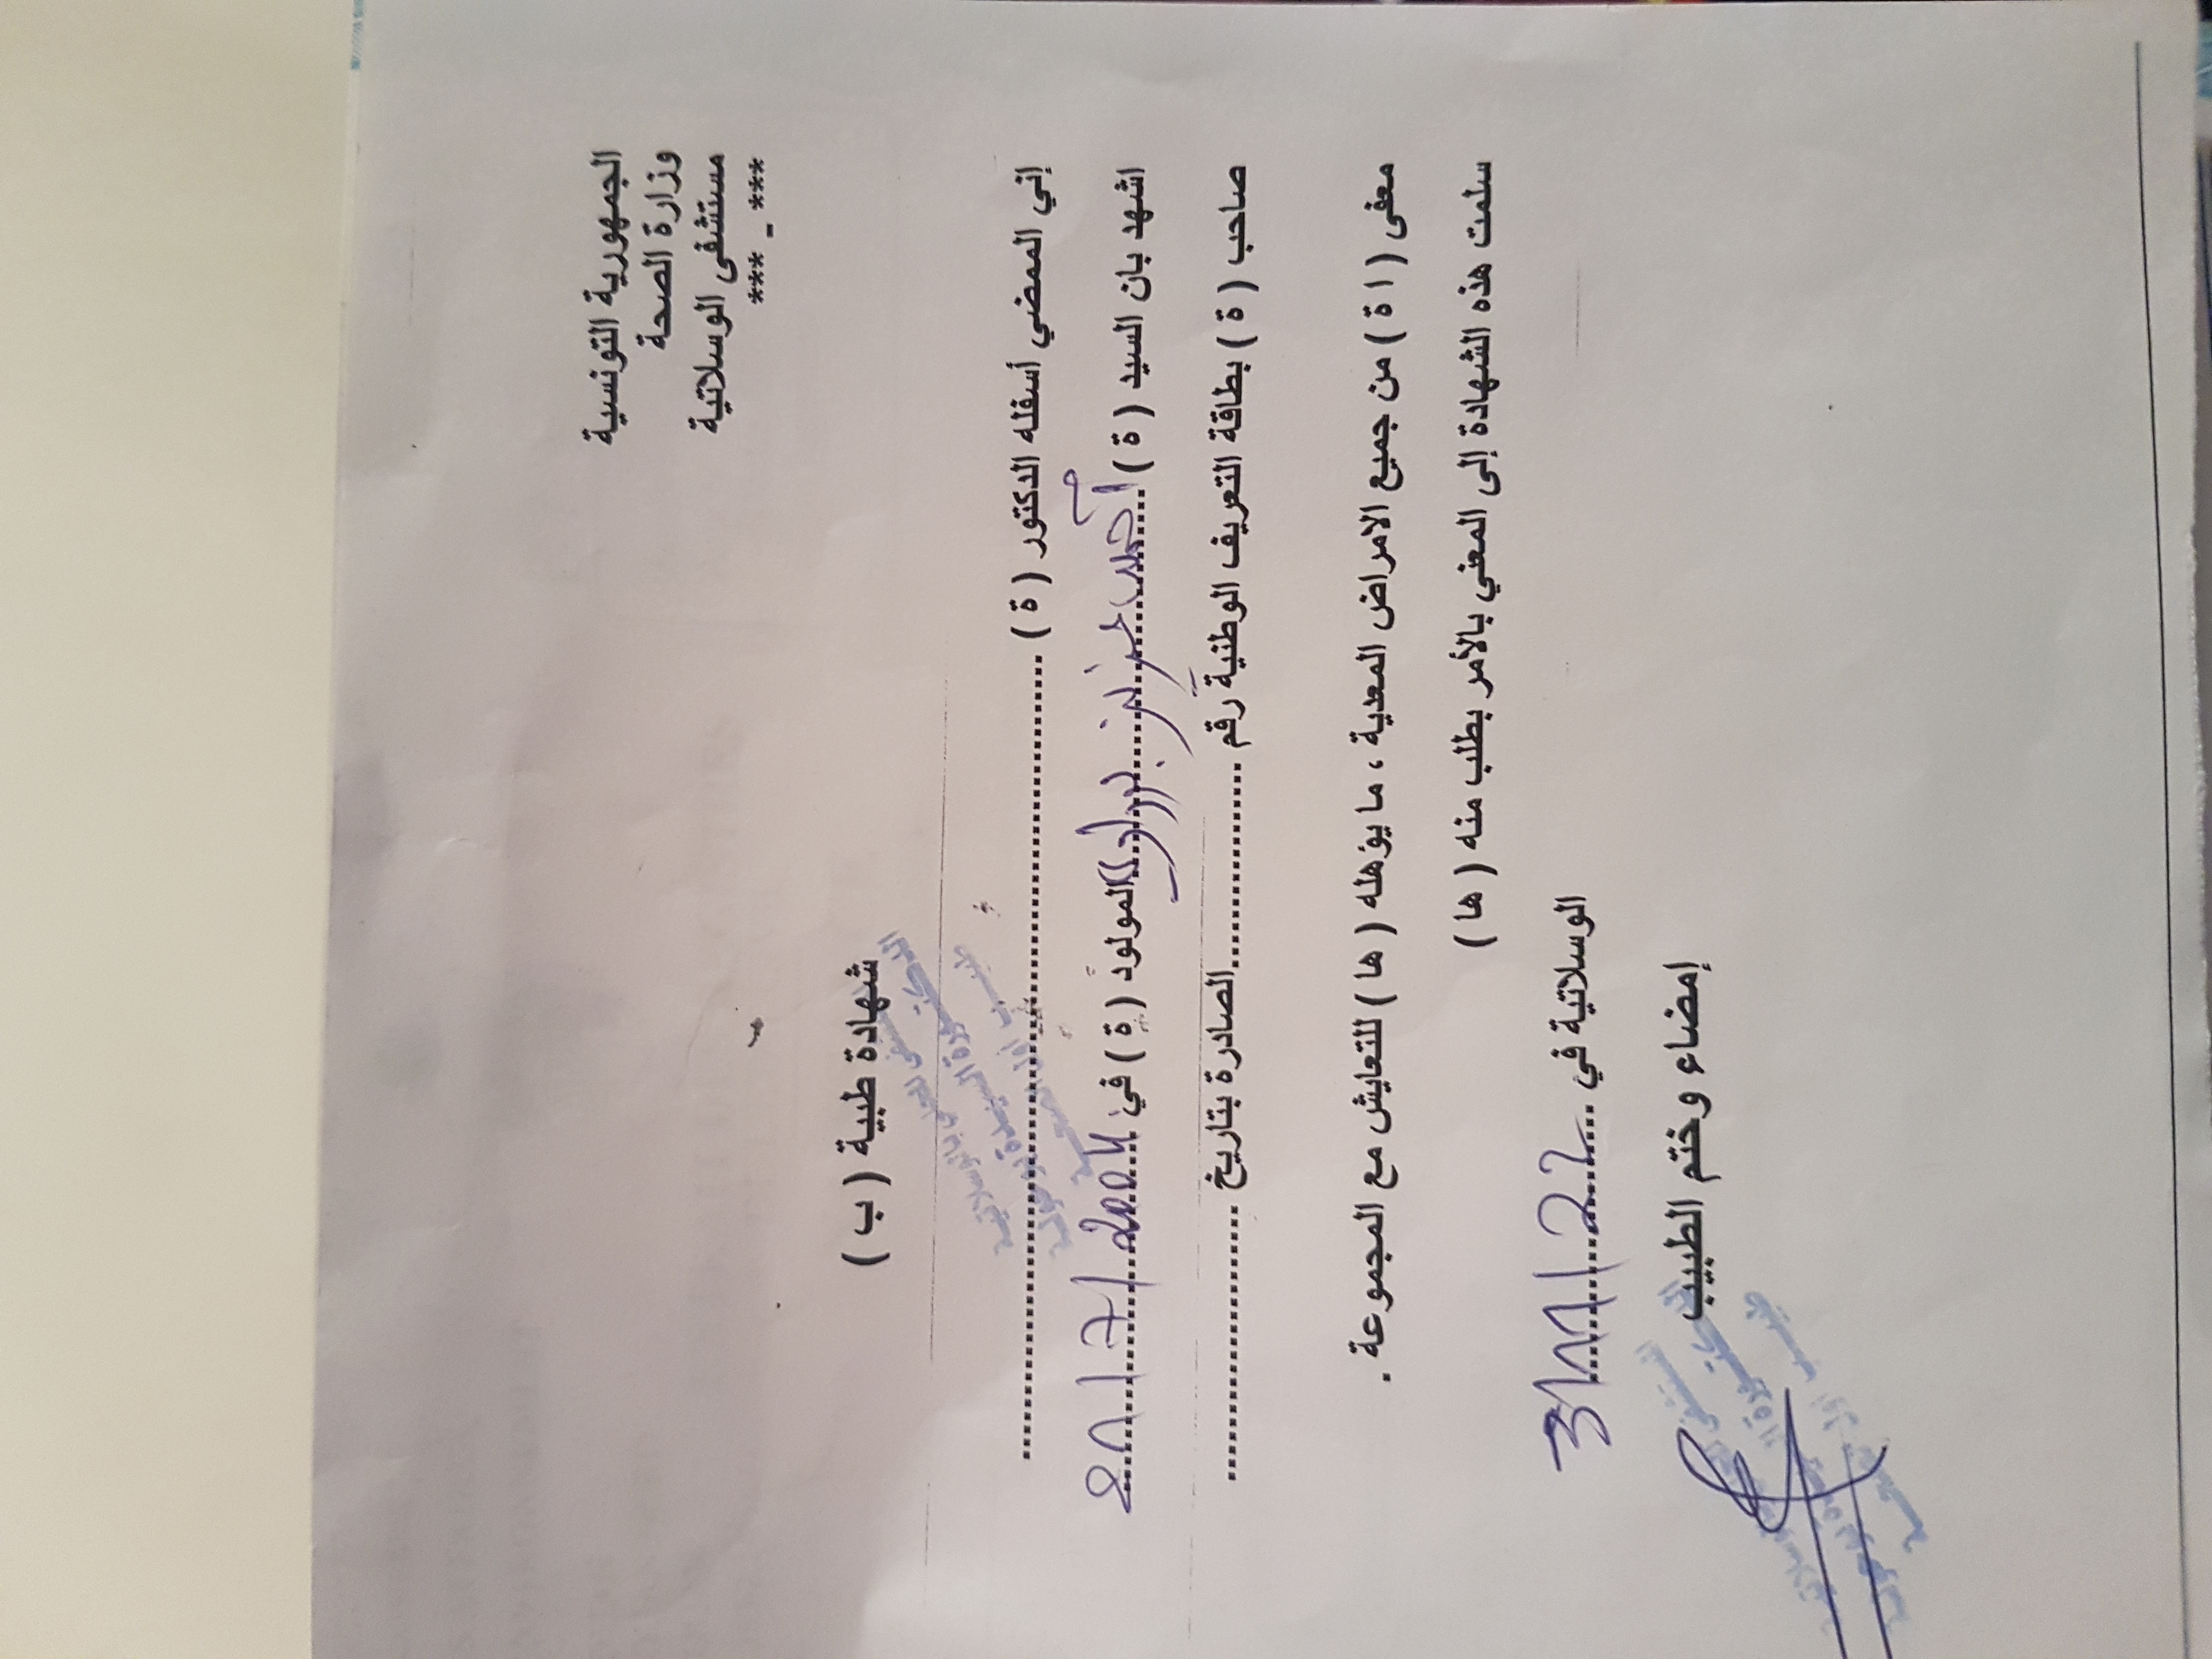 الجمهورية التونسية
وزارة الصحة
مستشفى الوسلاتية
*** _ ***
شهادة طبية ( ب )
إني الممضي أسفله الدكتور ( ة ) ........................................
اشهد بان السيد ( ة ) أحمد عز الدين المولود ( ة ) في 2004
صاحب ( ة ) بطاقة التعريف الوطنية رقم .................... الصادرة بتاريخ ....................
معفى ( ا ة ) من جميع الامراض المعدية ، ما يؤهله ( ها ) للتعايش مع المجموعة .
سلمت هذه الشهادة إلى المعني بالأمر بطلب منه ( ها )
الوسلاتية في 22
إمضاء وختم الطبيب